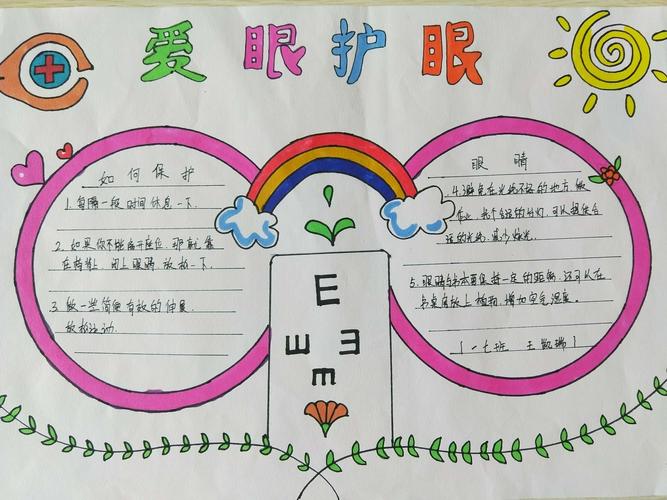 爱眼护眼
如何保护
1.每隔一段时间休息一下
2.如果你不能离开座位,那就靠
在椅背上,闭上眼睛放松一下。
3.做一些简便有效的伸展
放松运动
眼睛
4.避免在光线不好的地方做
作业,找个合适的台灯,可以提供合
适的光线,减少炫光。
5.眼睛与书本要保持一定的距离,还可以在
书桌前放上植物,增加空气湿度。
一七班 王凯瑞
E
E
E
E